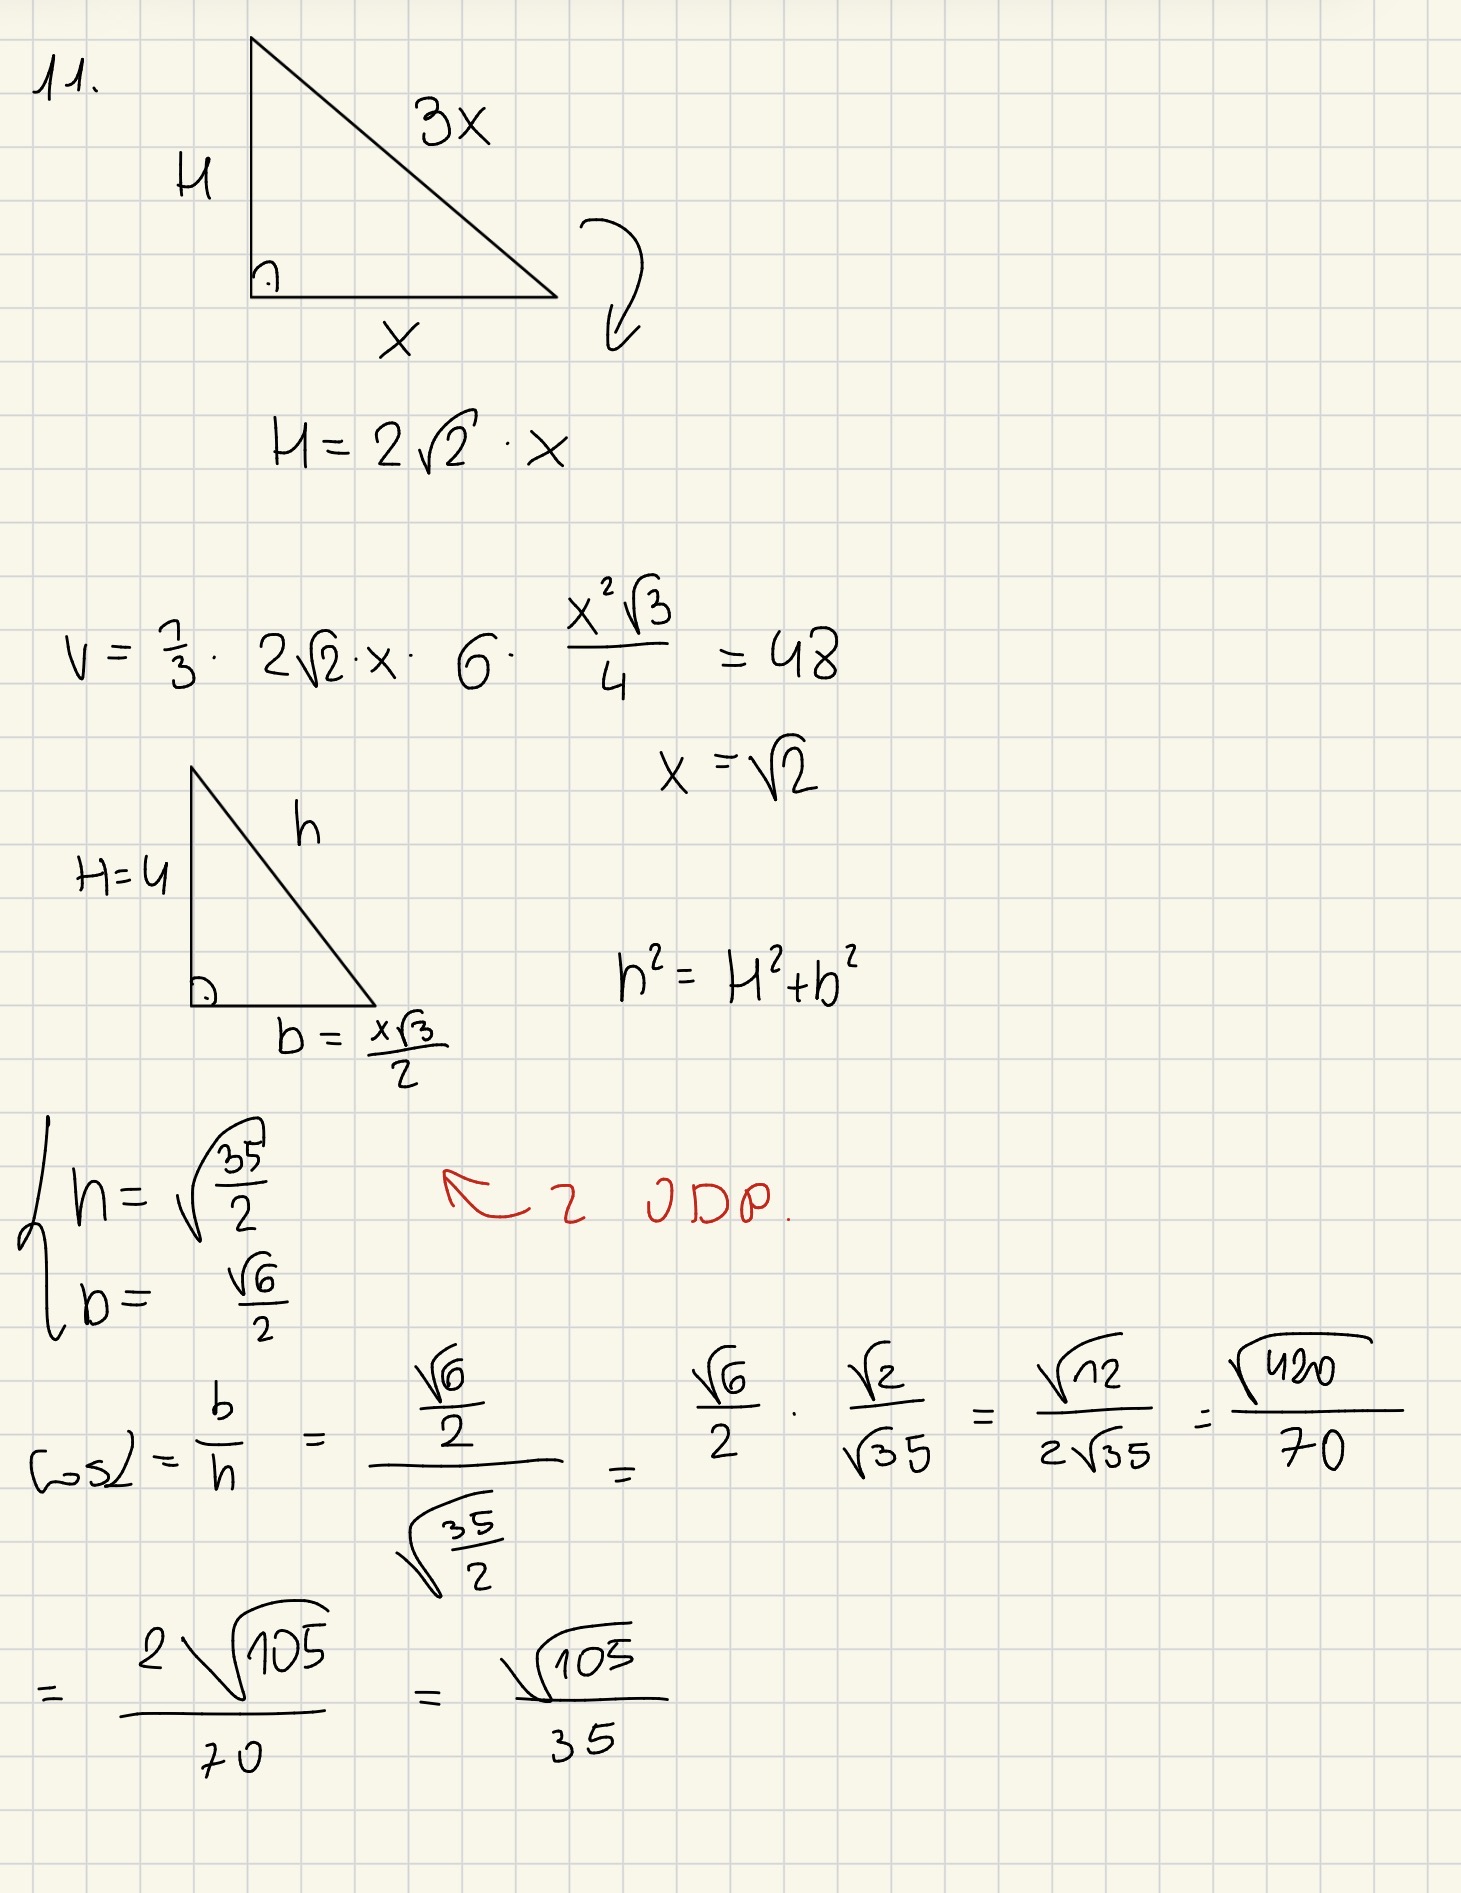 11.
3x
H
x
H = 2√2 · x
V = 1/3 · 2√2 · x · 6 · x²√3/4 = 48
x = √2
h
H = 4
h² = H² + b²
b = x√3/2
h = √(35/2)
2 ODP.
b = √6/2
cosα = b/h = (√6/2)/√(35/2) = √6/2 · √2/√35 = √12/2√35 = √420/70
= 2√105/70 = √105/35